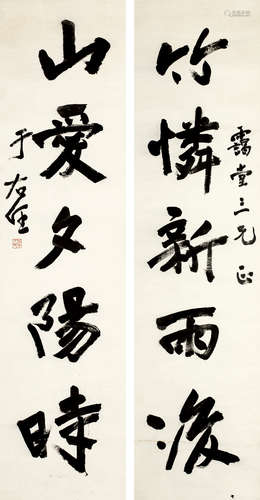 竹憐新雨後
山愛夕陽時
霭堂三兄正
于右任